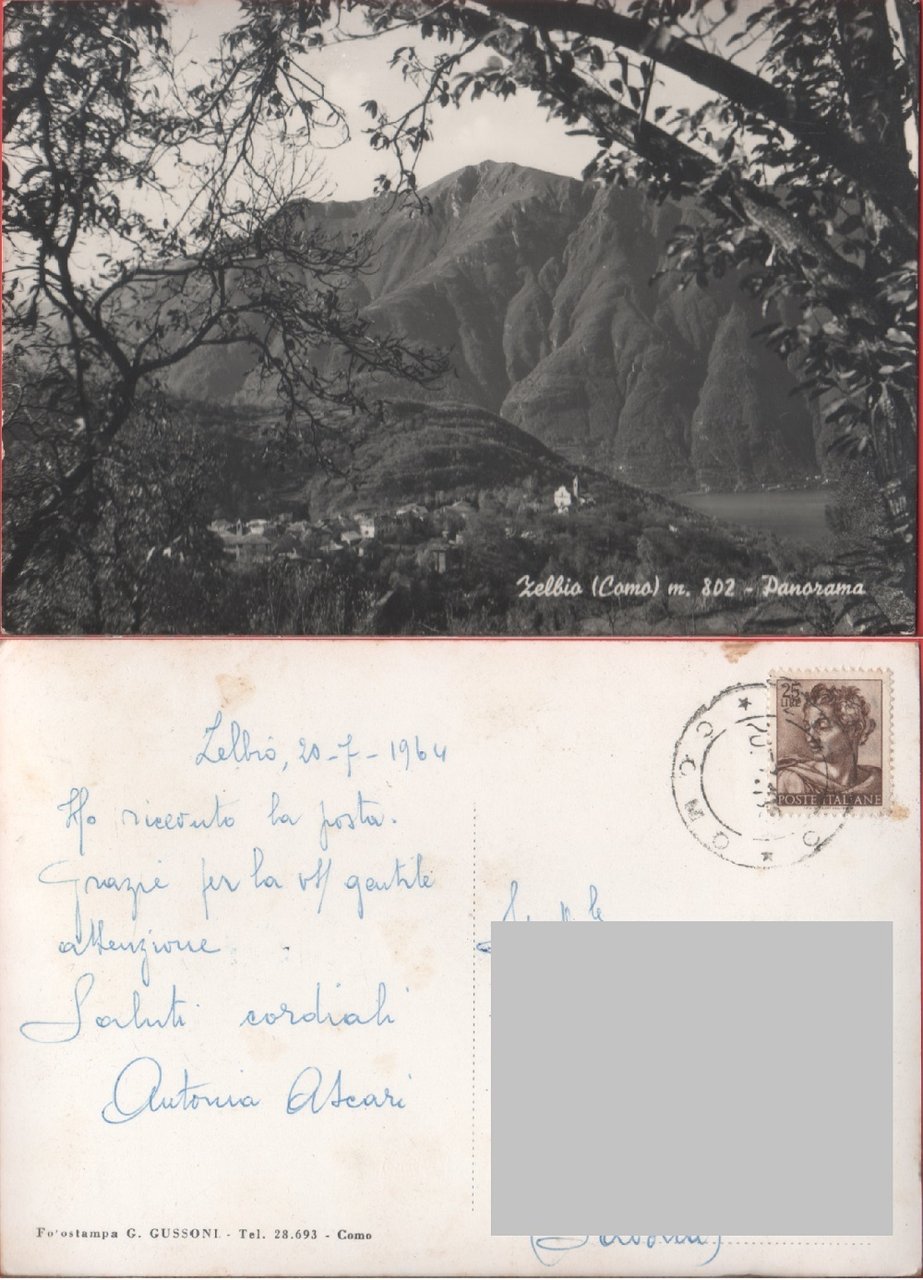 Zelbio (Como) m. 802 - Panorama
25
LIRE
POSTE ITALIANE
COMO
Zelbio, 20-7-1964
Ho ricevuto la posta.
Grazie per la gentile
attenzione
Saluti cordiali
Antonia Ascari
Fotostampa G. GUSSONI - Tel. 28.693 - Como
(Savona)